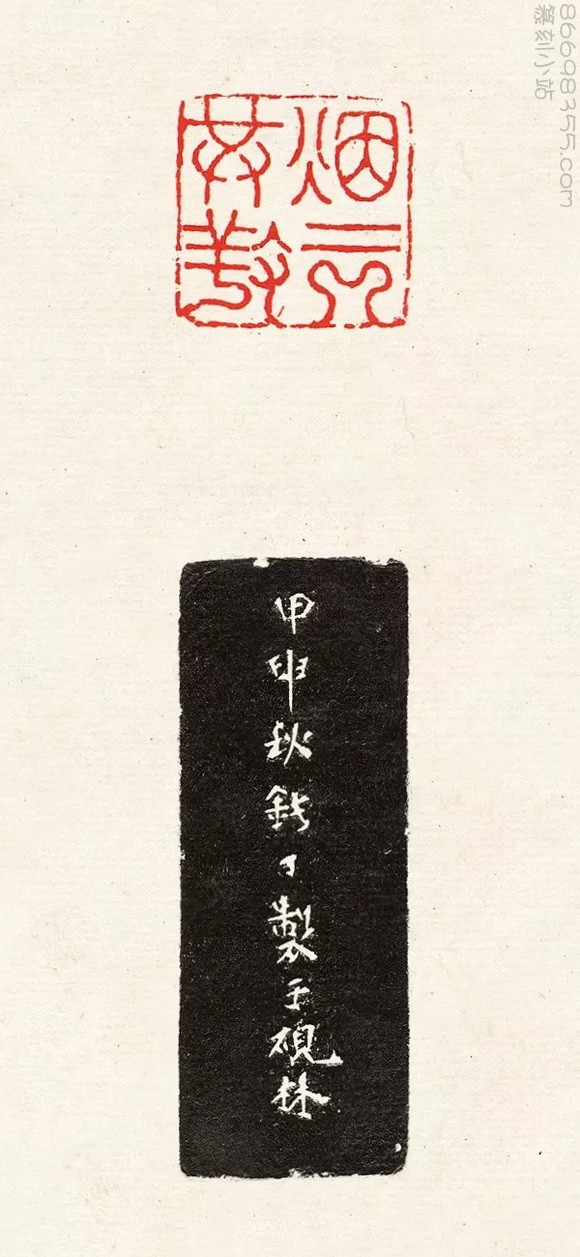 烟云
供养
甲申秋鈍丁製于硯林
86698355.com
篆刻小站